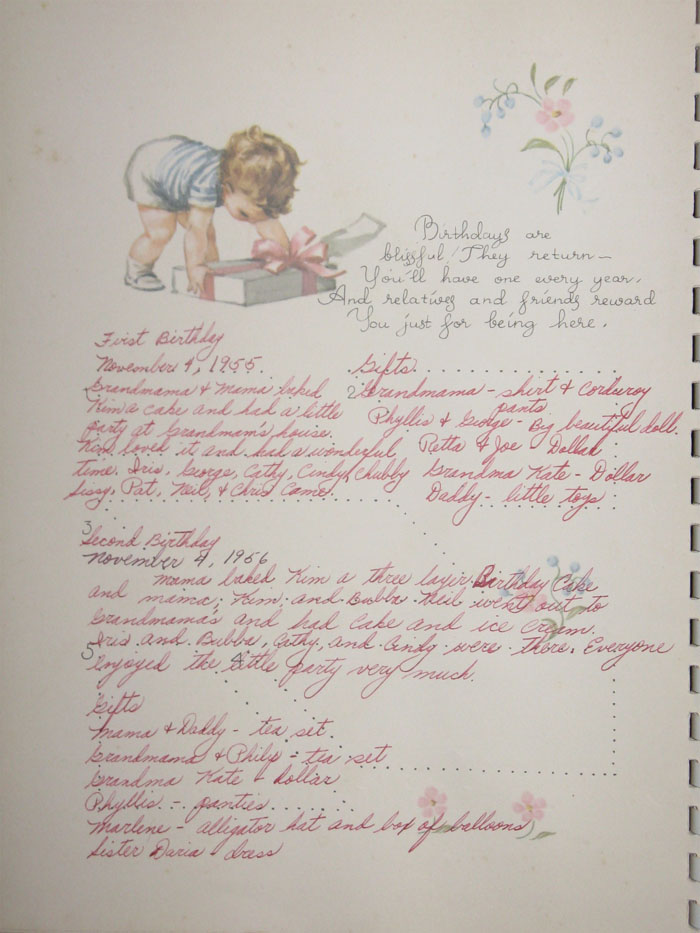 Birthdays are
blissful! They return—
You'll have one every year,
And relatives and friends reward
You just for being here.
First Birthday
November 4, 1955.
Grandmama & Mama baked
Kim a cake and had a little
party at Grandmam's house.
Kim loved it and had a wonderful
time. Iris, George, Cathy, Cindy, Chubby
Sissy, Pat, Neil, & Chris Came.
Gifts
2 Grandmama - shirt & Corduroy
pants
Phyllis & George - Big beautiful doll.
Retta & Joe - Dollar
Grandma Kate - Dollar
Daddy - little toys
3
Second Birthday
November 4, 1956
Mama baked Kim a three layer Birthday Cake
and mama, Kim, and Bubba Neil went out to
Grandmama's and had Cake and ice cream.
Iris and Bubba, Cathy, and Cindy were there. Everyone
5 enjoyed the little party very much.
Gifts
Mama & Daddy - tea set.
Grandmama & Philip - tea set
Grandma Kate - dollar
Phyllis - panties
Marlene - alligator hat and box of balloons
Sister Daria - dress